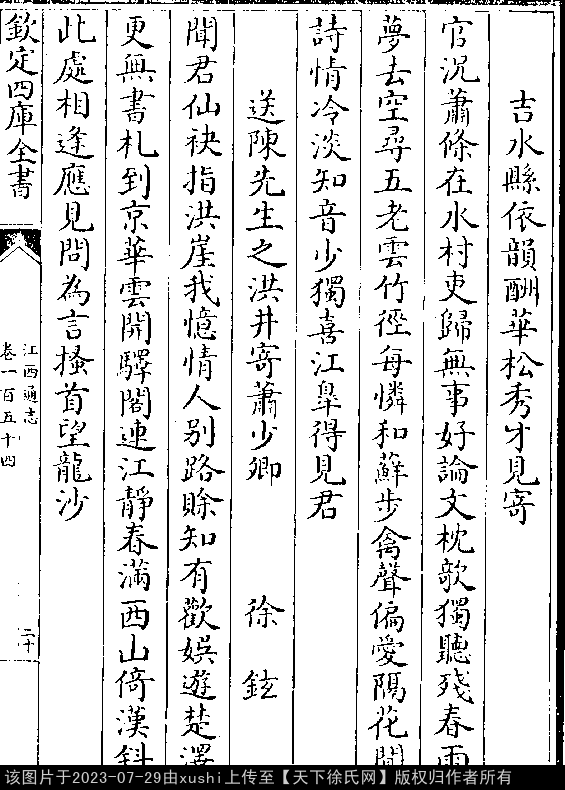 吉水縣依韻酬華松秀才見寄
官況蕭條在水村吏歸無事好論文枕欹獨聽殘春雨
夢去空尋五老雲竹徑每憐和蘚步禽聲偏愛隔花聞
詩情冷淡知音少獨喜江臯得見君
送陳先生之洪井寄蕭少卿　徐鉉
聞君仙袂指洪崖我憶情人别路賒知有歡娛遊楚澤
更無書札到京華雲開驛閣連江靜春滿西山倚漢斜
此處相逢應見問為言搔首望龍沙
欽定四庫全書
江西通志
卷一百五十四
二十
该图片于2023-07-29由xushi上传至【天下徐氏网】版权归作者所有